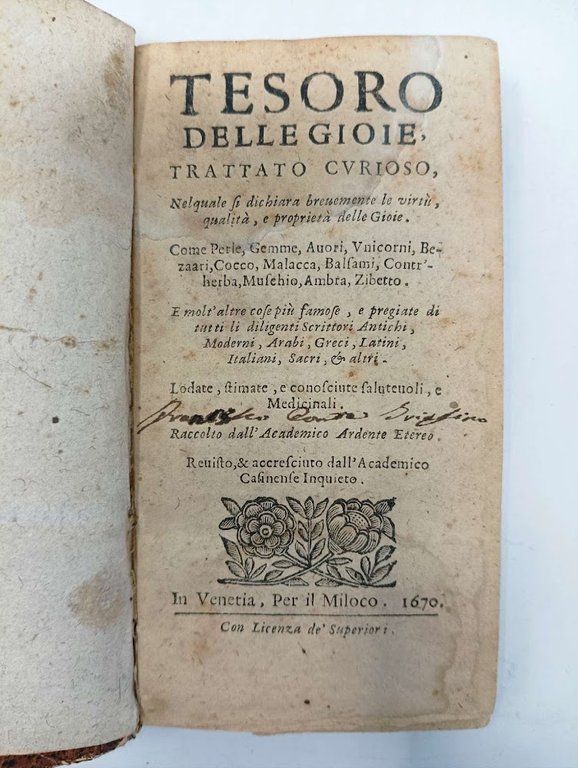 TESORO
DELLE GIOIE,
TRATTATO CVRIOSO,
Nelquale si dichiara breuemente le virtù,
qualità, e proprietà delle Gioie.
Come Perle, Gemme, Auori, Vnicorni, Be-
zaari, Cocco, Malacca, Balsami, Contr'-
herba, Muschio, Ambra, Zibetto.
E molt'altre cose più famose, e pregiate di
tutti li diligenti Scrittori Antichi,
Moderni, Arabi, Greci, Latini,
Italiani, Sacri, & altri.
Lodate, stimate, e conosciute saluteuoli, e
Medicinali.
Raccolto dall'Academico Ardente Etereo.
Reuisto, & accresciuto dall'Academico
Casinense Inquieto.
In Venetia, Per il Miloco. 1670.
Con Licenza de' Superiori.